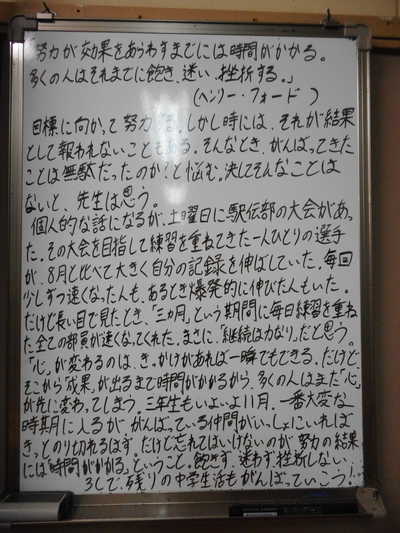 努力が効果をあらわすまでには時間がかかる。
多くの人はそれまでに飽き、迷い、挫折する。」
(ヘンリー・フォード )
目標に向かって努力する。しかし時には、それが結果
として報われないこともある。そんなとき、がんばってきた
ことは無駄だったのか?と悩む。決してそんなことは
ないと、先生は思う。
個人的な話になるが、土曜日に駅伝部の大会があっ
た。その大会を目指して練習を重ねてきた一人ひとりの選手
が、8月と比べて大きく自分の記録を伸ばしていた。毎回
少しずつ速くなった人も、あるとき爆発的に伸びた人もいた。
だけど長い目で見たとき、「三ヵ月」という期間に毎日練習を重ね
た全ての部員が速くなってくれた。まさに、「継続は力なり」だと思う。
「心」が変わるのは、きっかけがあれば一瞬でもできる。だけど、
そこから「成果」が出るまで時間がかかるから、多くの人はまた「心」
が先に変わってしまう。三年生もいよいよ11月。一番大変な
時期に入るが、がんばっている仲間がいっしょにいれば
きっとのり切れるはず。だけど忘れてはいけないのが、努力の結果
には「時間がかかる」ということ。飽きず、迷わず、挫折しない。
そうして、残りの中学生活もがんばっていこう!